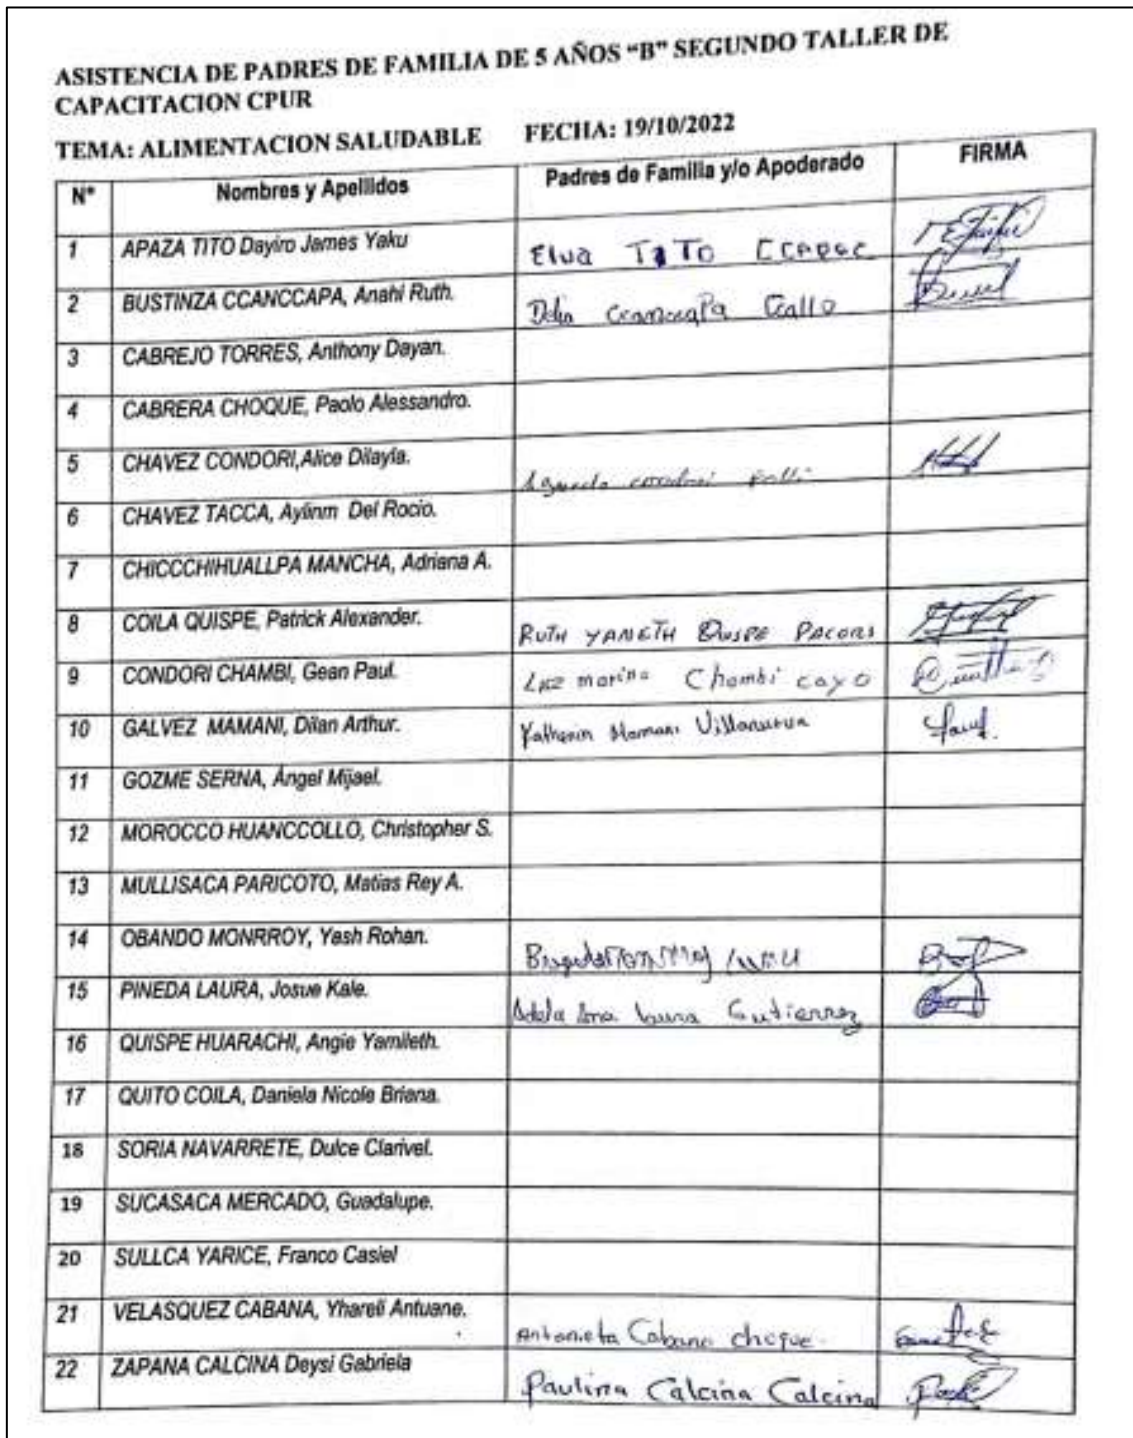 ASISTENCIA DE PADRES DE FAMILIA DE 5 AÑOS "B" SEGUNDO TALLER DE
CAPACITACION CPUR
TEMA: ALIMENTACION SALUDABLE FECHA: 19/10/2022
N° Nombres y Apellidos Padres de Familia y/o Apoderado FIRMA
1 APAZA TITO Dayiro James Yaku Elva TITO
2 BUSTINZA CCANCCAPA, Anahi Ruth. Delia Ccanccapa Ccallo
3 CABREJO TORRES, Anthony Dayan.
4 CABRERA CHOQUE, Paolo Alessandro.
5 CHAVEZ CONDORI,Alice Dilayla.
6 CHAVEZ TACCA, Aylinm Del Rocio.
7 CHICCCHIHUALLPA MANCHA, Adriana A.
8 COILA QUISPE, Patrick Alexander. RUTH YANETH QUISPE PACORI
9 CONDORI CHAMBI, Gean Paul. Luz marina Chambi cayo
10 GALVEZ MAMANI, Dilan Arthur. Yatherin Mamani Villanueva
11 GOZME SERNA, Ángel Mijael.
12 MOROCCO HUANCCOLLO, Christopher S.
13 MULLISACA PARICOTO, Matias Rey A.
14 OBANDO MONRROY, Yash Rohan.
15 PINEDA LAURA, Josue Kale. Adela Ana Laura Gutierrez
16 QUISPE HUARACHI, Angie Yamileth.
17 QUITO COILA, Daniela Nicole Briana.
18 SORIA NAVARRETE, Dulce Clarivel.
19 SUCASACA MERCADO, Guadalupe.
20 SULLCA YARICE, Franco Casiel
21 VELASQUEZ CABANA, Yhareli Antuane. Antonieta Cabana choque
22 ZAPANA CALCINA Deysi Gabriela Paulina Calcina Calcina